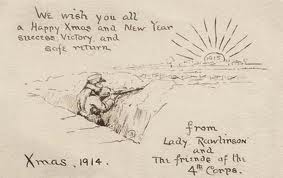 We wish you all
a Happy Xmas and New Year
success Victory and
safe return
1915
from
Lady Rawlinson
and
The friends of the
4th Corps.
Xmas. 1914.